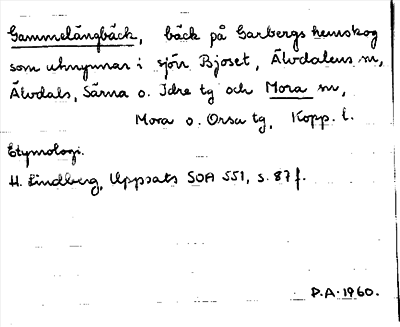 Gammelängbäck, bäck på Garbergs hemskog
som utmynnar i sjön Bjoset, Älvdalens sn,
Älvdals, Särna o. Idre tg och Mora sn,
Mora o. Orsa tg, Kopp. l.
Etymologi.
H. Lindberg, Uppsats SOA 551, s. 87 f.
D.A. 1960.